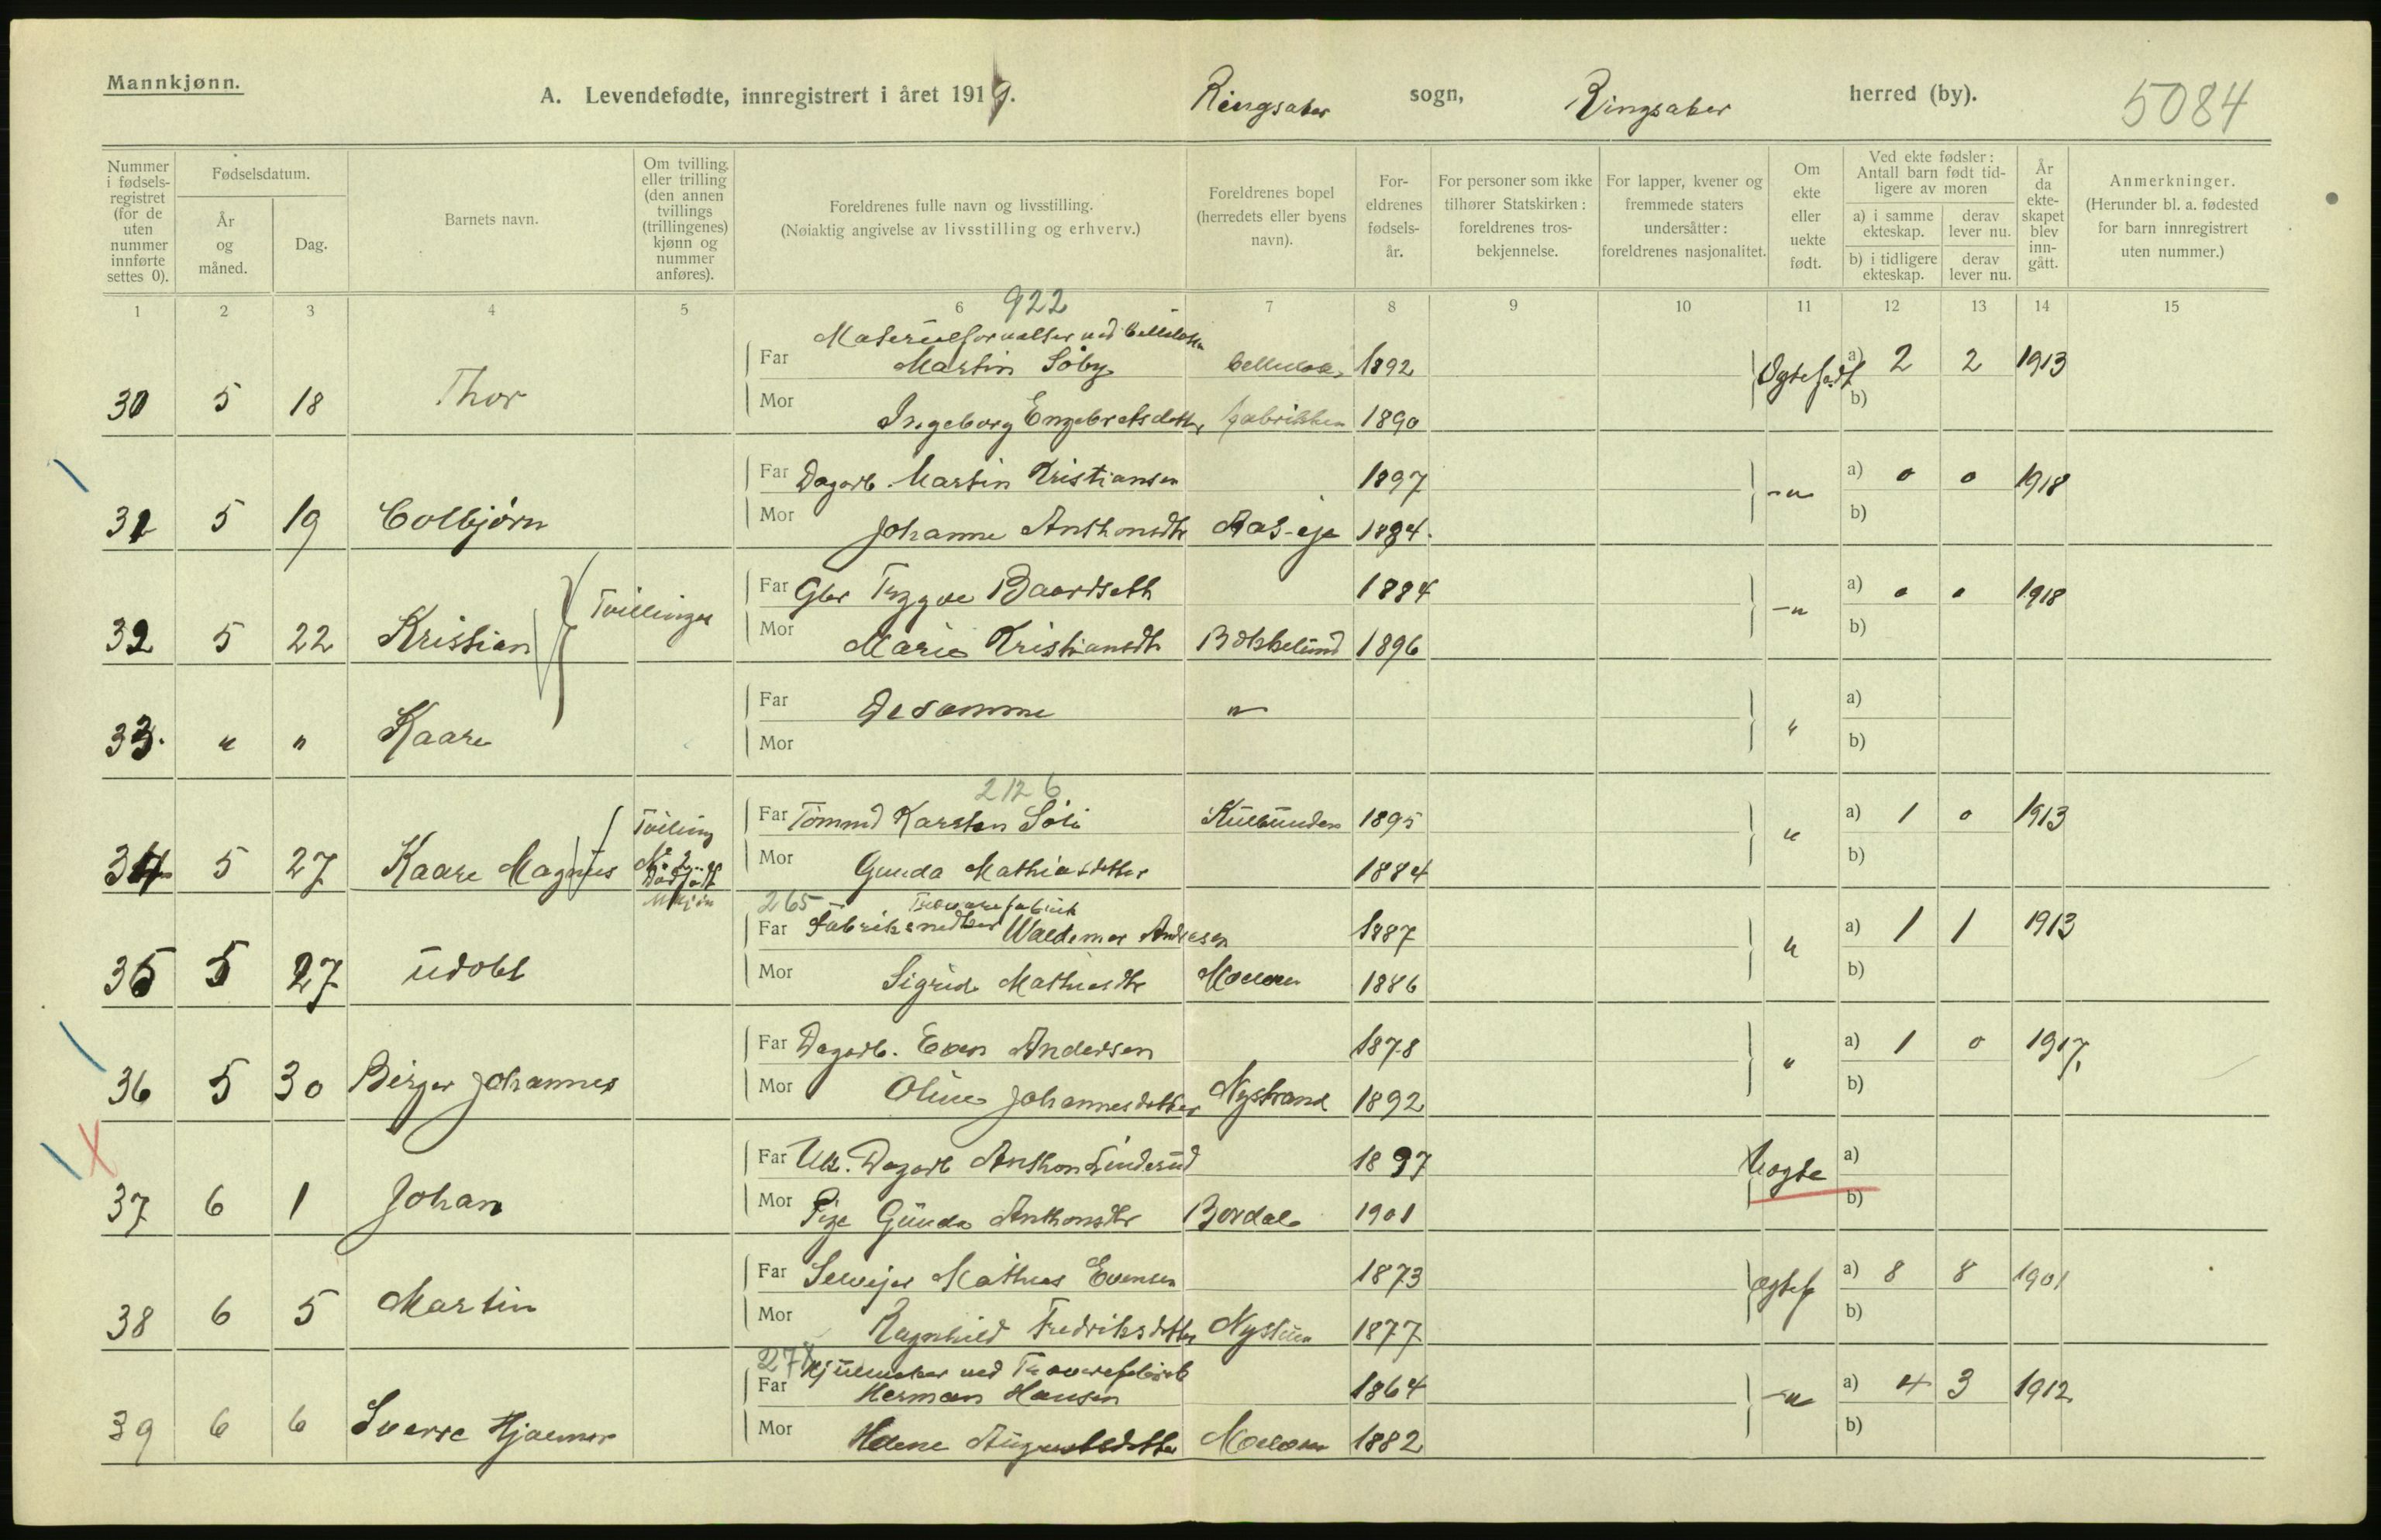 Mannkjønn.
A. Levendefødte, innregistrert i året 1919. Ringsaker sogn, Ringsaker herred (by). 5084
Nummer i fødselsregistret (for de uten nummer innførte settes 0).
Fødselsdatum.
År og måned.
Dag.
Barnets navn.
Om tvilling eller trilling (den annen tvillings (trillingenes) kjønn og nummer anføres).
Foreldrenes fulle navn og livsstilling.
(Nøiaktig angivelse av livsstilling og erhverv.)
Foreldrenes bopel (herredets eller byens navn).
Foreldrenes fødselsår.
For personer som ikke tilhører Statskirken: foreldrenes trosbekjennelse.
For lapper, kvener og fremmede staters undersåtter: foreldrenes nasjonalitet.
Om ekte eller uekte født.
Ved ekte fødsler: Antall barn født tidligere av moren
a) i samme ekteskap. derav lever nu.
b) i tidligere ekteskap. derav lever nu.
År da ekteskapet blev inngått.
Anmerkninger.
(Herunder bl. a. fødested for barn innregistrert uten nummer.)
1 2 3 4 5 6 7 8 9 10 11 12 13 14 15
922
Materialforvalter ved
Far Martin Söby 1892 Ogtefødt a) 2 2 1913
30 5 18 Thor
Mor Ingeborg Engebretsdatter fabrikken 1890 b)
Far Dagarb. Martin Kristiansen 1897 -"- a) 0 0 1918
31 5 19 Colbjørn
Mor Johanne Anthonsdtr Aas-eje 1894 b)
Far Gbr Trygve Baardseth 1884 -" a) 0 0 1918
32 5 22 Kristian Tvillinger
Mor Marie Kristiansdtr 1896 b)
Far De samme " " a)
33 " " Kaare
Mor b)
2126
Far Tömmd Karsten Söli 1895 " a) 1 0 1913
34 5 27 Kaare Magnus Tvilling No 2 Dödfödt Mkjön
Mor Gunda Mathiasdatter 1884 b)
265 Trævarefabrik
Far Waldemar Andresen 1887 " a) 1 1 1913
35 5 27 Udöbt
Mor Sigrid Mathiasdtr Moelven 1886 b)
Far Dagarb. Even Andersen 1878 " a) 1 0 1917.
36 5 30 Birger Johannes
Mor Oline Johannesdatter Nystrand 1892 b)
Far Uk. Dagarb Anthon Linderud 1897 Uogte a)
37 6 1 Johan
Mor Pige Gunda Anthonsdtr Bordal 1901 b)
Far Selvejer Mathias Evensen 1873 Ogtef a) 8 8 1901
38 6 5 Martin
Mor Ragnhild Fredriksdatter 1877 b)
Hjulmaker ved Trævarefabrik
Far Herman Hansen 1864 -"- a) 4 3 1912
39 6 6 Sverre Hjalmar
Mor Helene Augustsdatter Moelven 1882 b)